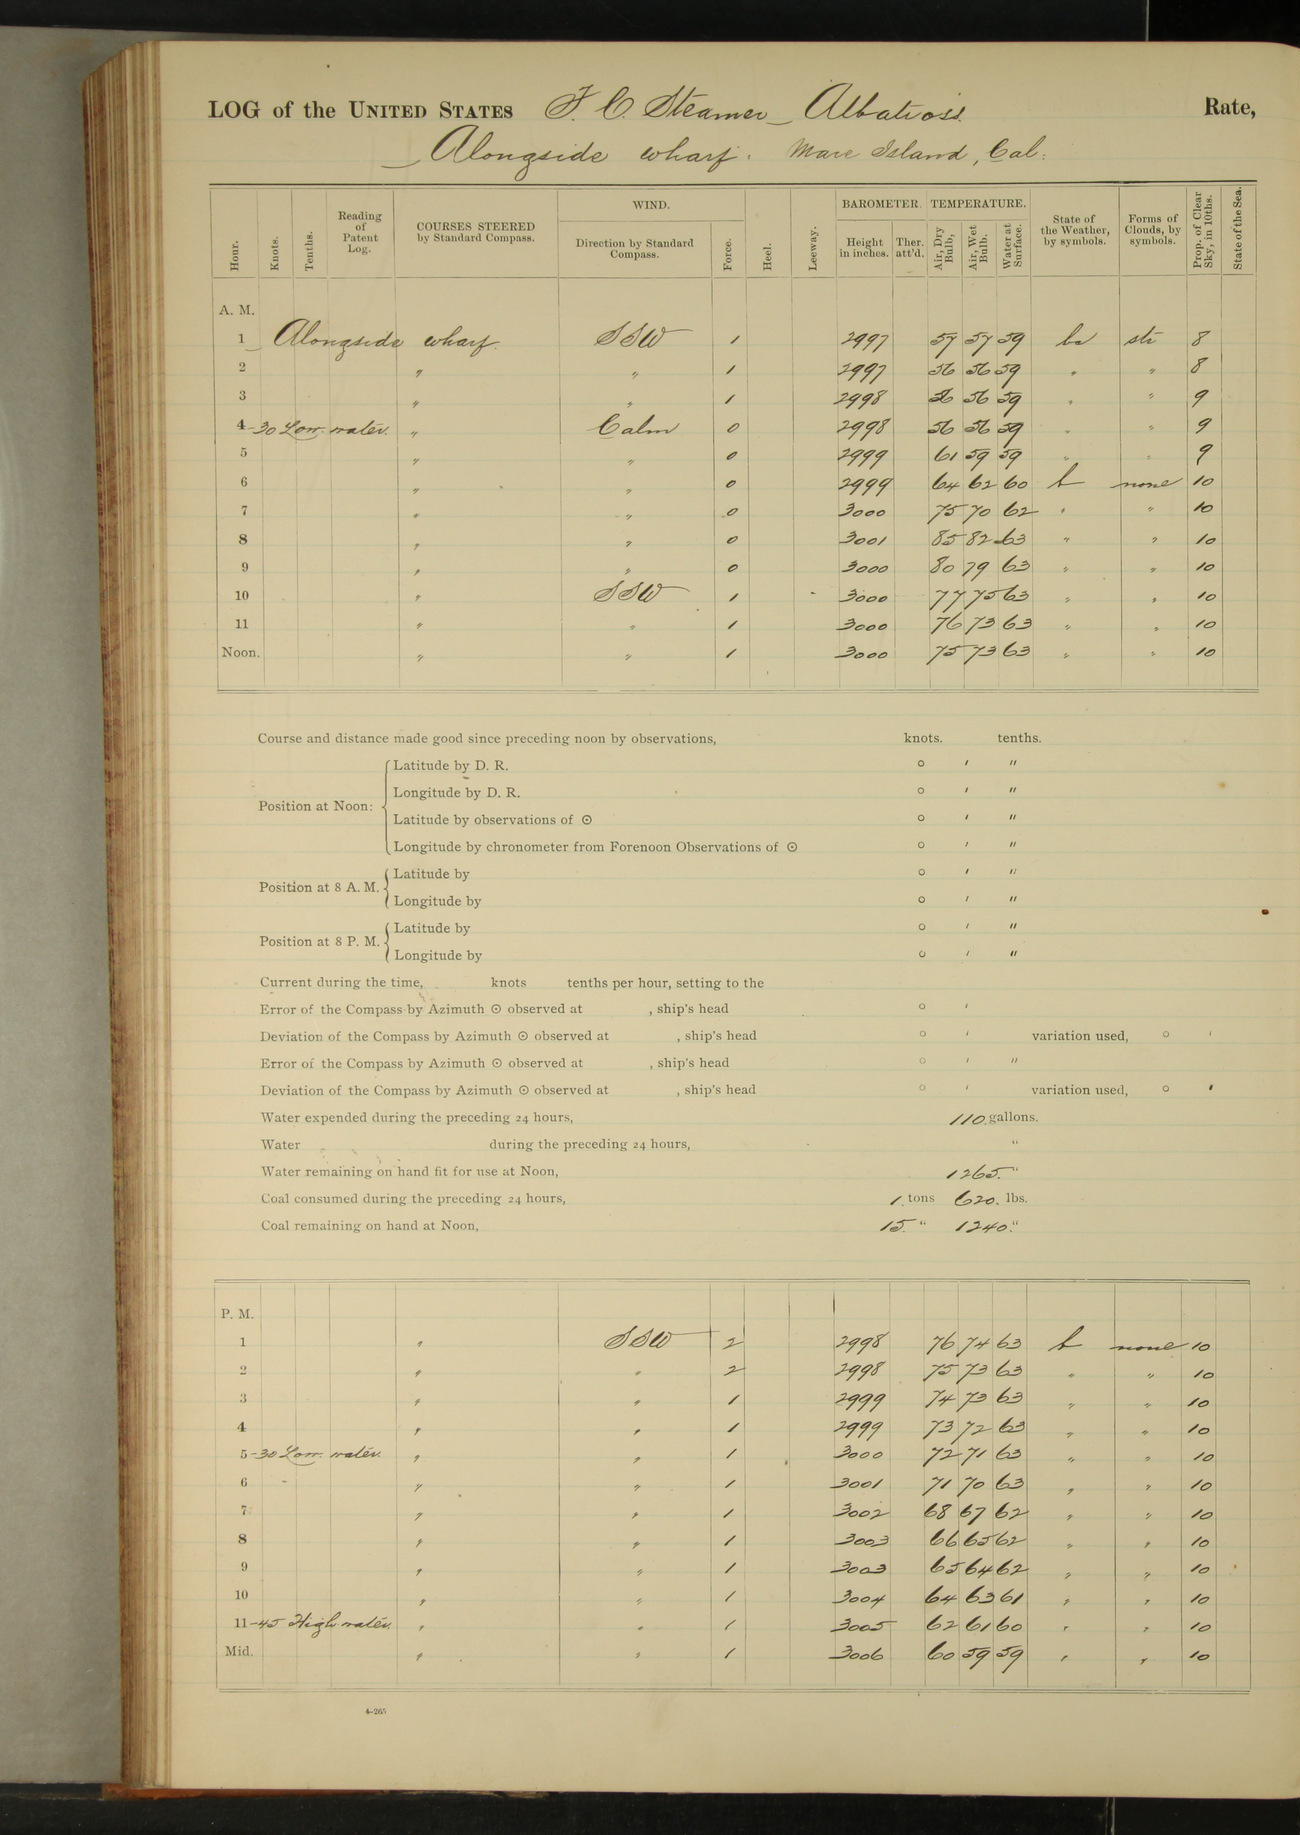 LOG of the UNITED STATES F. C. Steamer Albatross. Rate,
Alongside wharf. Mare Island, Cal.
Hour. Knots. Tenths. Reading of Patent Log. COURSES STEERED by Standard Compass. WIND. Direction by Standard Compass. Force. Heel. Leeway. BAROMETER. Height in inches. Ther. att'd. TEMPERATURE. Air, Dry Bulb, Air, Wet Bulb. Water at Surface. State of the Weather, by symbols. Forms of Clouds, by symbols. Prop. of Clear Sky, in 10ths. State of the Sea.
A. M.
1 Alongside wharf. SSW 1 2997 57 57 59 bc str 8
2 " " 1 2997 56 56 59 " " 8
3 " " 1 2998 56 56 59 " " 9
4-30 Low water. " Calm 0 2998 56 56 59 " " 9
5 " " 0 2999 61 59 59 " " 9
6 " " 0 2999 64 62 60 b none 10
7 " " 0 3000 75 70 62 " " 10
8 " " 0 3001 85 82 63 " " 10
9 " " 0 3000 80 79 63 " " 10
10 " SSW 1 3000 77 75 63 " " 10
11 " " 1 3000 76 73 63 " " 10
Noon. " " 1 3000 75 73 63 " " 10
Course and distance made good since preceding noon by observations, knots. tenths.
Position at Noon: Latitude by D. R. ° ' "
Longitude by D. R. ° ' "
Latitude by observations of ☉ ° ' "
Longitude by chronometer from Forenoon Observations of ☉ ° ' "
Position at 8 A. M. Latitude by ° ' "
Longitude by ° ' "
Position at 8 P. M. Latitude by ° ' "
Longitude by ° ' "
Current during the time, knots tenths per hour, setting to the
Error of the Compass by Azimuth ☉ observed at , ship's head ° '
Deviation of the Compass by Azimuth ☉ observed at , ship's head ° ' variation used, ° '
Error of the Compass by Azimuth ☉ observed at , ship's head ° ' "
Deviation of the Compass by Azimuth ☉ observed at , ship's head ° ' variation used, ° '
Water expended during the preceding 24 hours, 110 gallons.
Water during the preceding 24 hours, "
Water remaining on hand fit for use at Noon, 1265. "
Coal consumed during the preceding 24 hours, 1. tons 620. lbs.
Coal remaining on hand at Noon, 15. " 1240. "
P. M.
1 " SSW 2 2998 76 74 63 b none 10
2 " " 2 2998 75 73 63 " " 10
3 " " 1 2999 74 73 63 " " 10
4 " " 1 2999 73 72 63 " " 10
5-30 Low water. " " 1 3000 72 71 63 " " 10
6 " " 1 3001 71 70 63 " " 10
7 " " 1 3002 68 67 62 " " 10
8 " " 1 3003 66 65 62 " " 10
9 " " 1 3003 65 64 62 " " 10
10 " " 1 3004 64 63 61 " " 10
11-45 High water. " " 1 3005 62 61 60 " " 10
Mid. " " 1 3006 60 59 59 " " 10
4-265